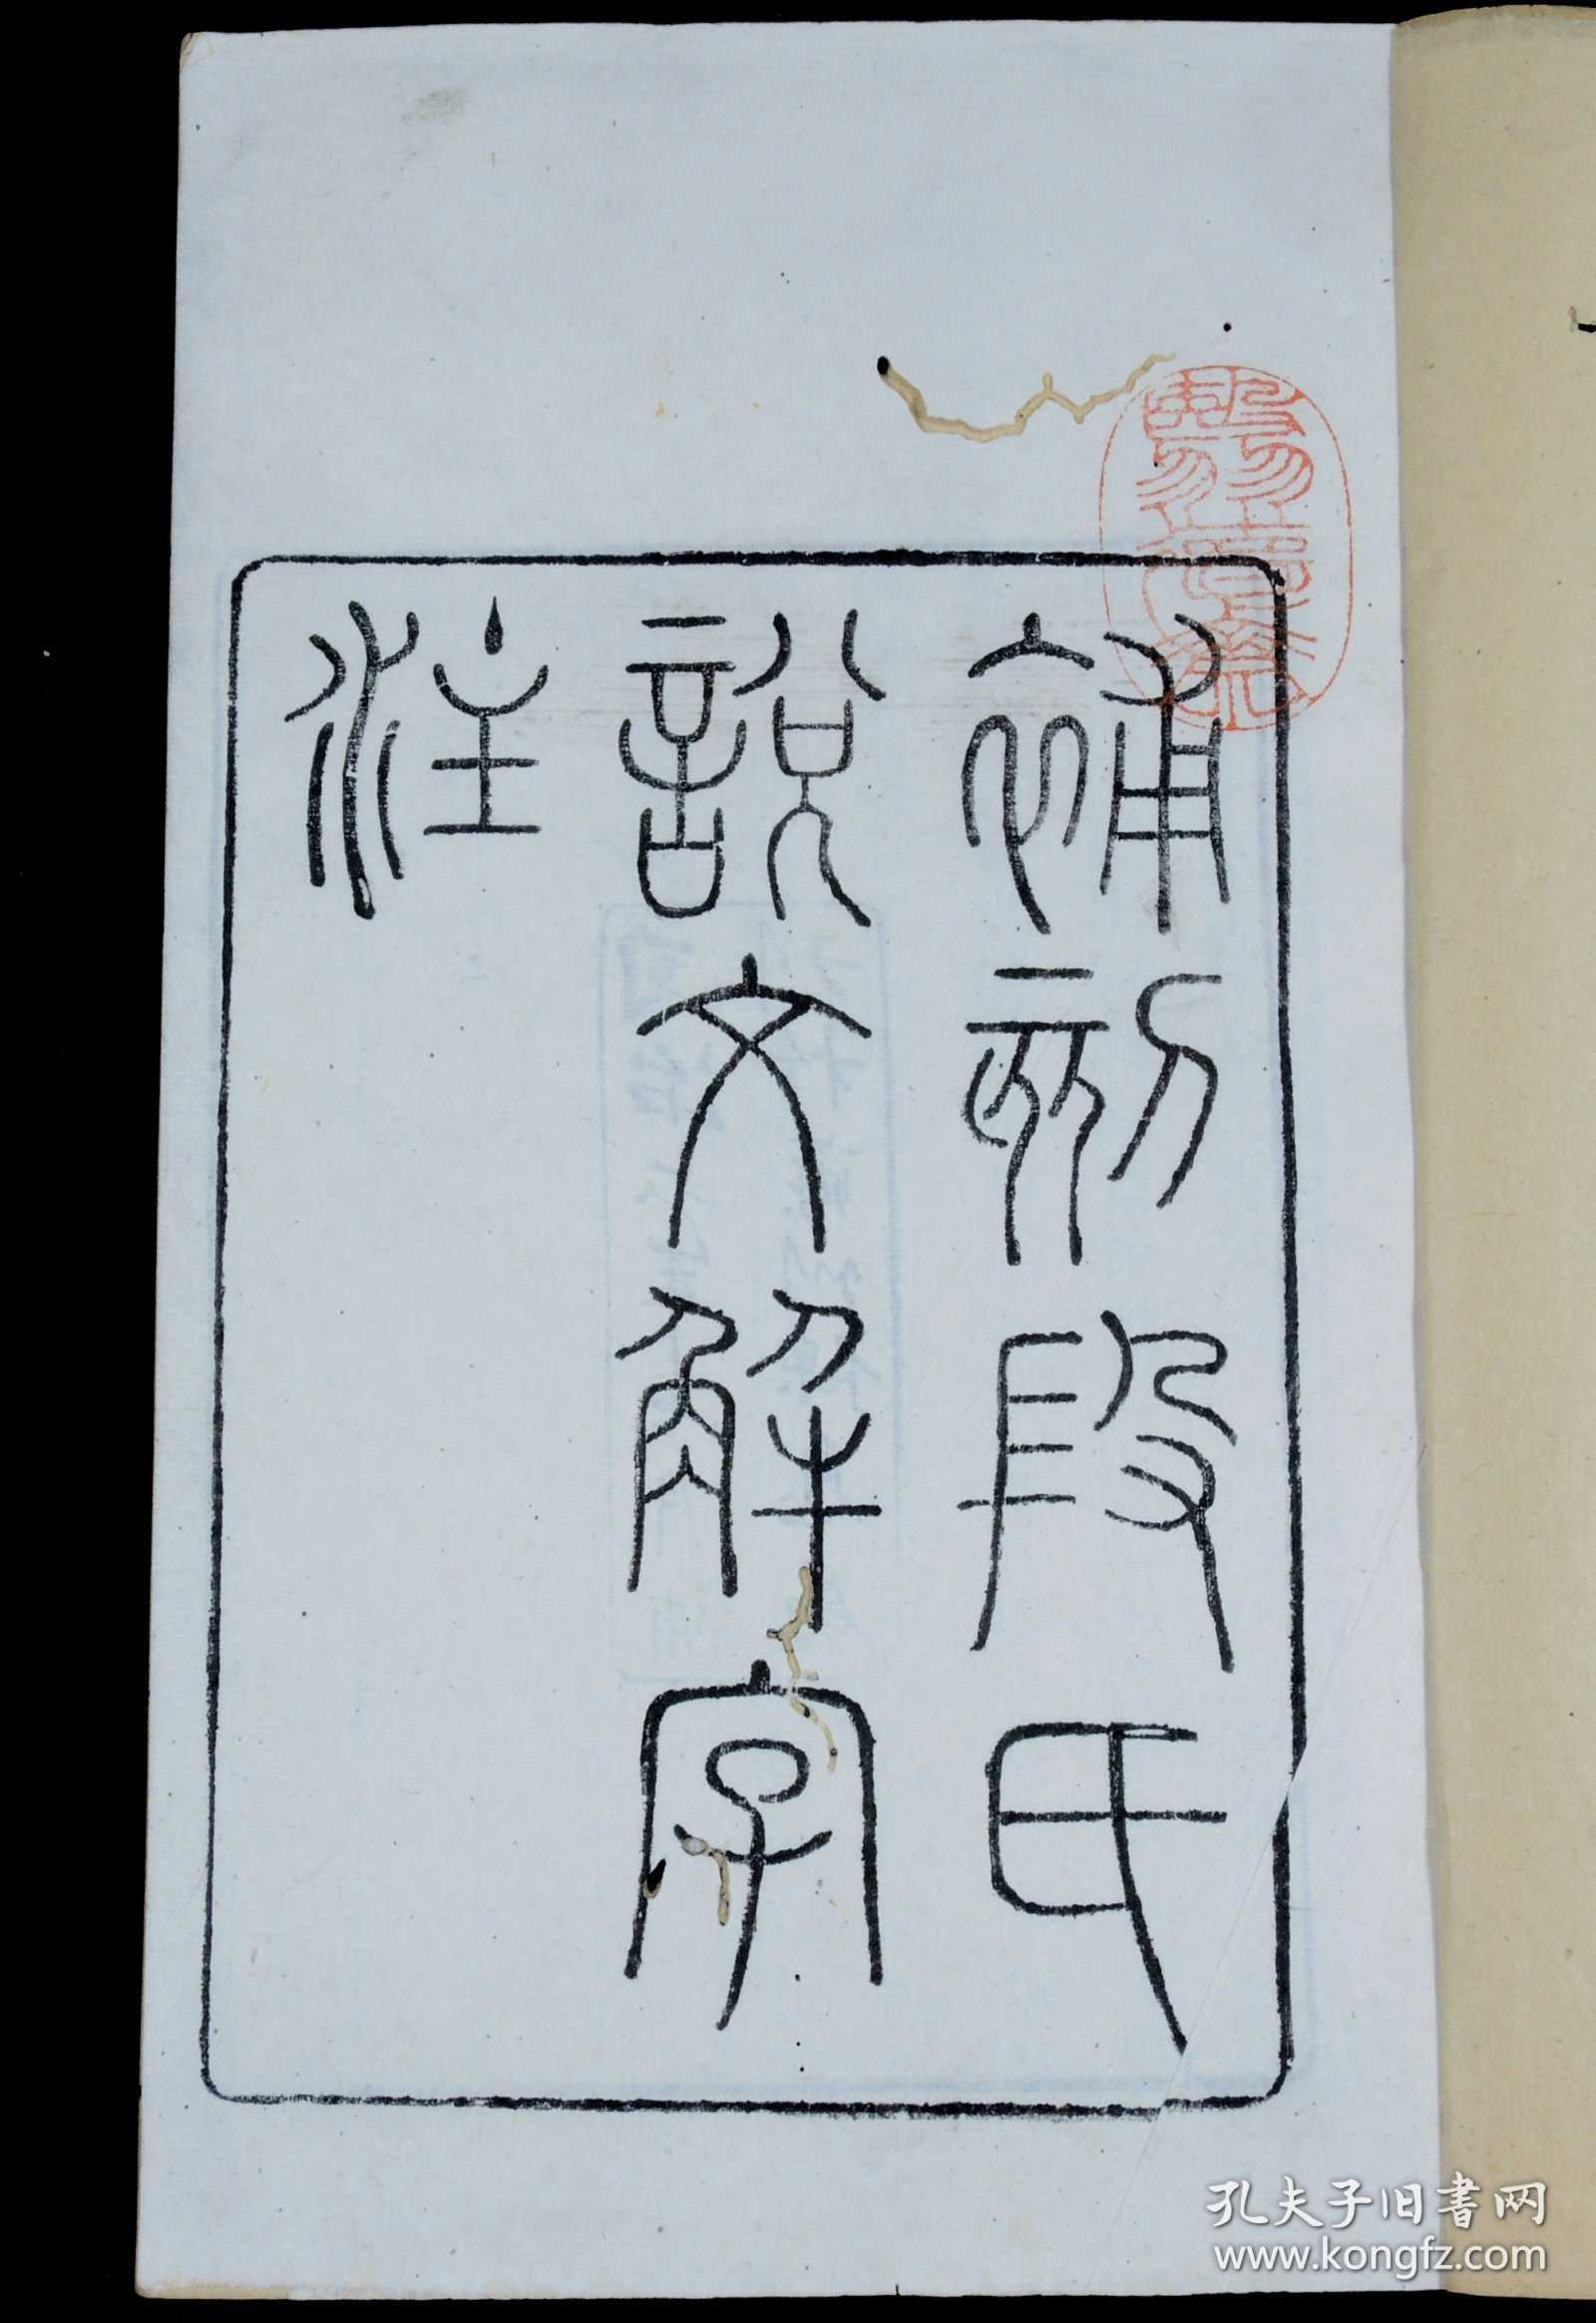 補刻段氏
說文解字
注
孔夫子旧書网
www.kongfz.com